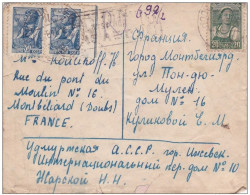 Mme Koulikoff. H
Rue du pont du
Moulin № 16.
Montbeliard (Doubs)
FRANCE.
Франция.
Город Монтбельярд
ул Пон-дю-
Мулен.
дом № 16
Куликовой Е. М
Удмуртская А.С.С.Р. гор. Ижевск.
Интернациональный пер. дом № 10
Жарской Н. Н.